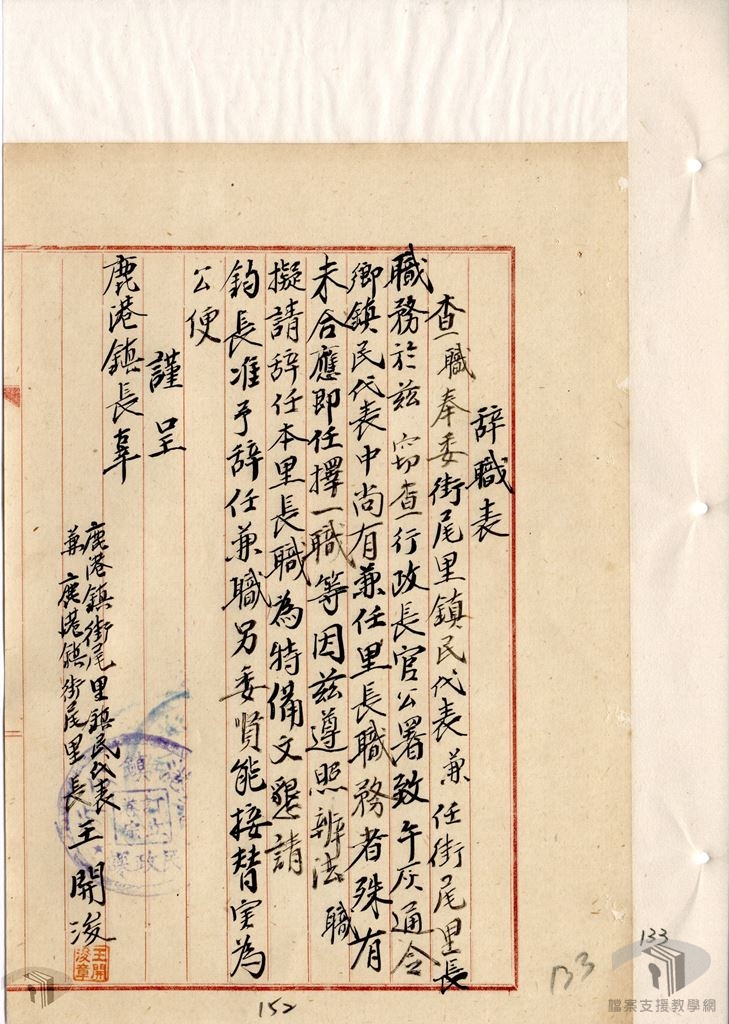 辞職表
查職奉委街尾里鎮民代表兼任街尾里長
職務於兹窃查行政長官公署致午灰通令
鄉鎮民代表中尚有兼任里長職務者殊有
未合應即任擇一職等因兹遵照辦法職
擬請辞任本里長職為特備文懇請
鈞長准予辞任兼職另委賢能接替实為
公便
謹呈
鹿港鎮長辜
鹿港鎮街尾里鎮民代表
兼鹿港鎮街尾里長王開浚
王開浚章
152
133
133
檔案支援教學網